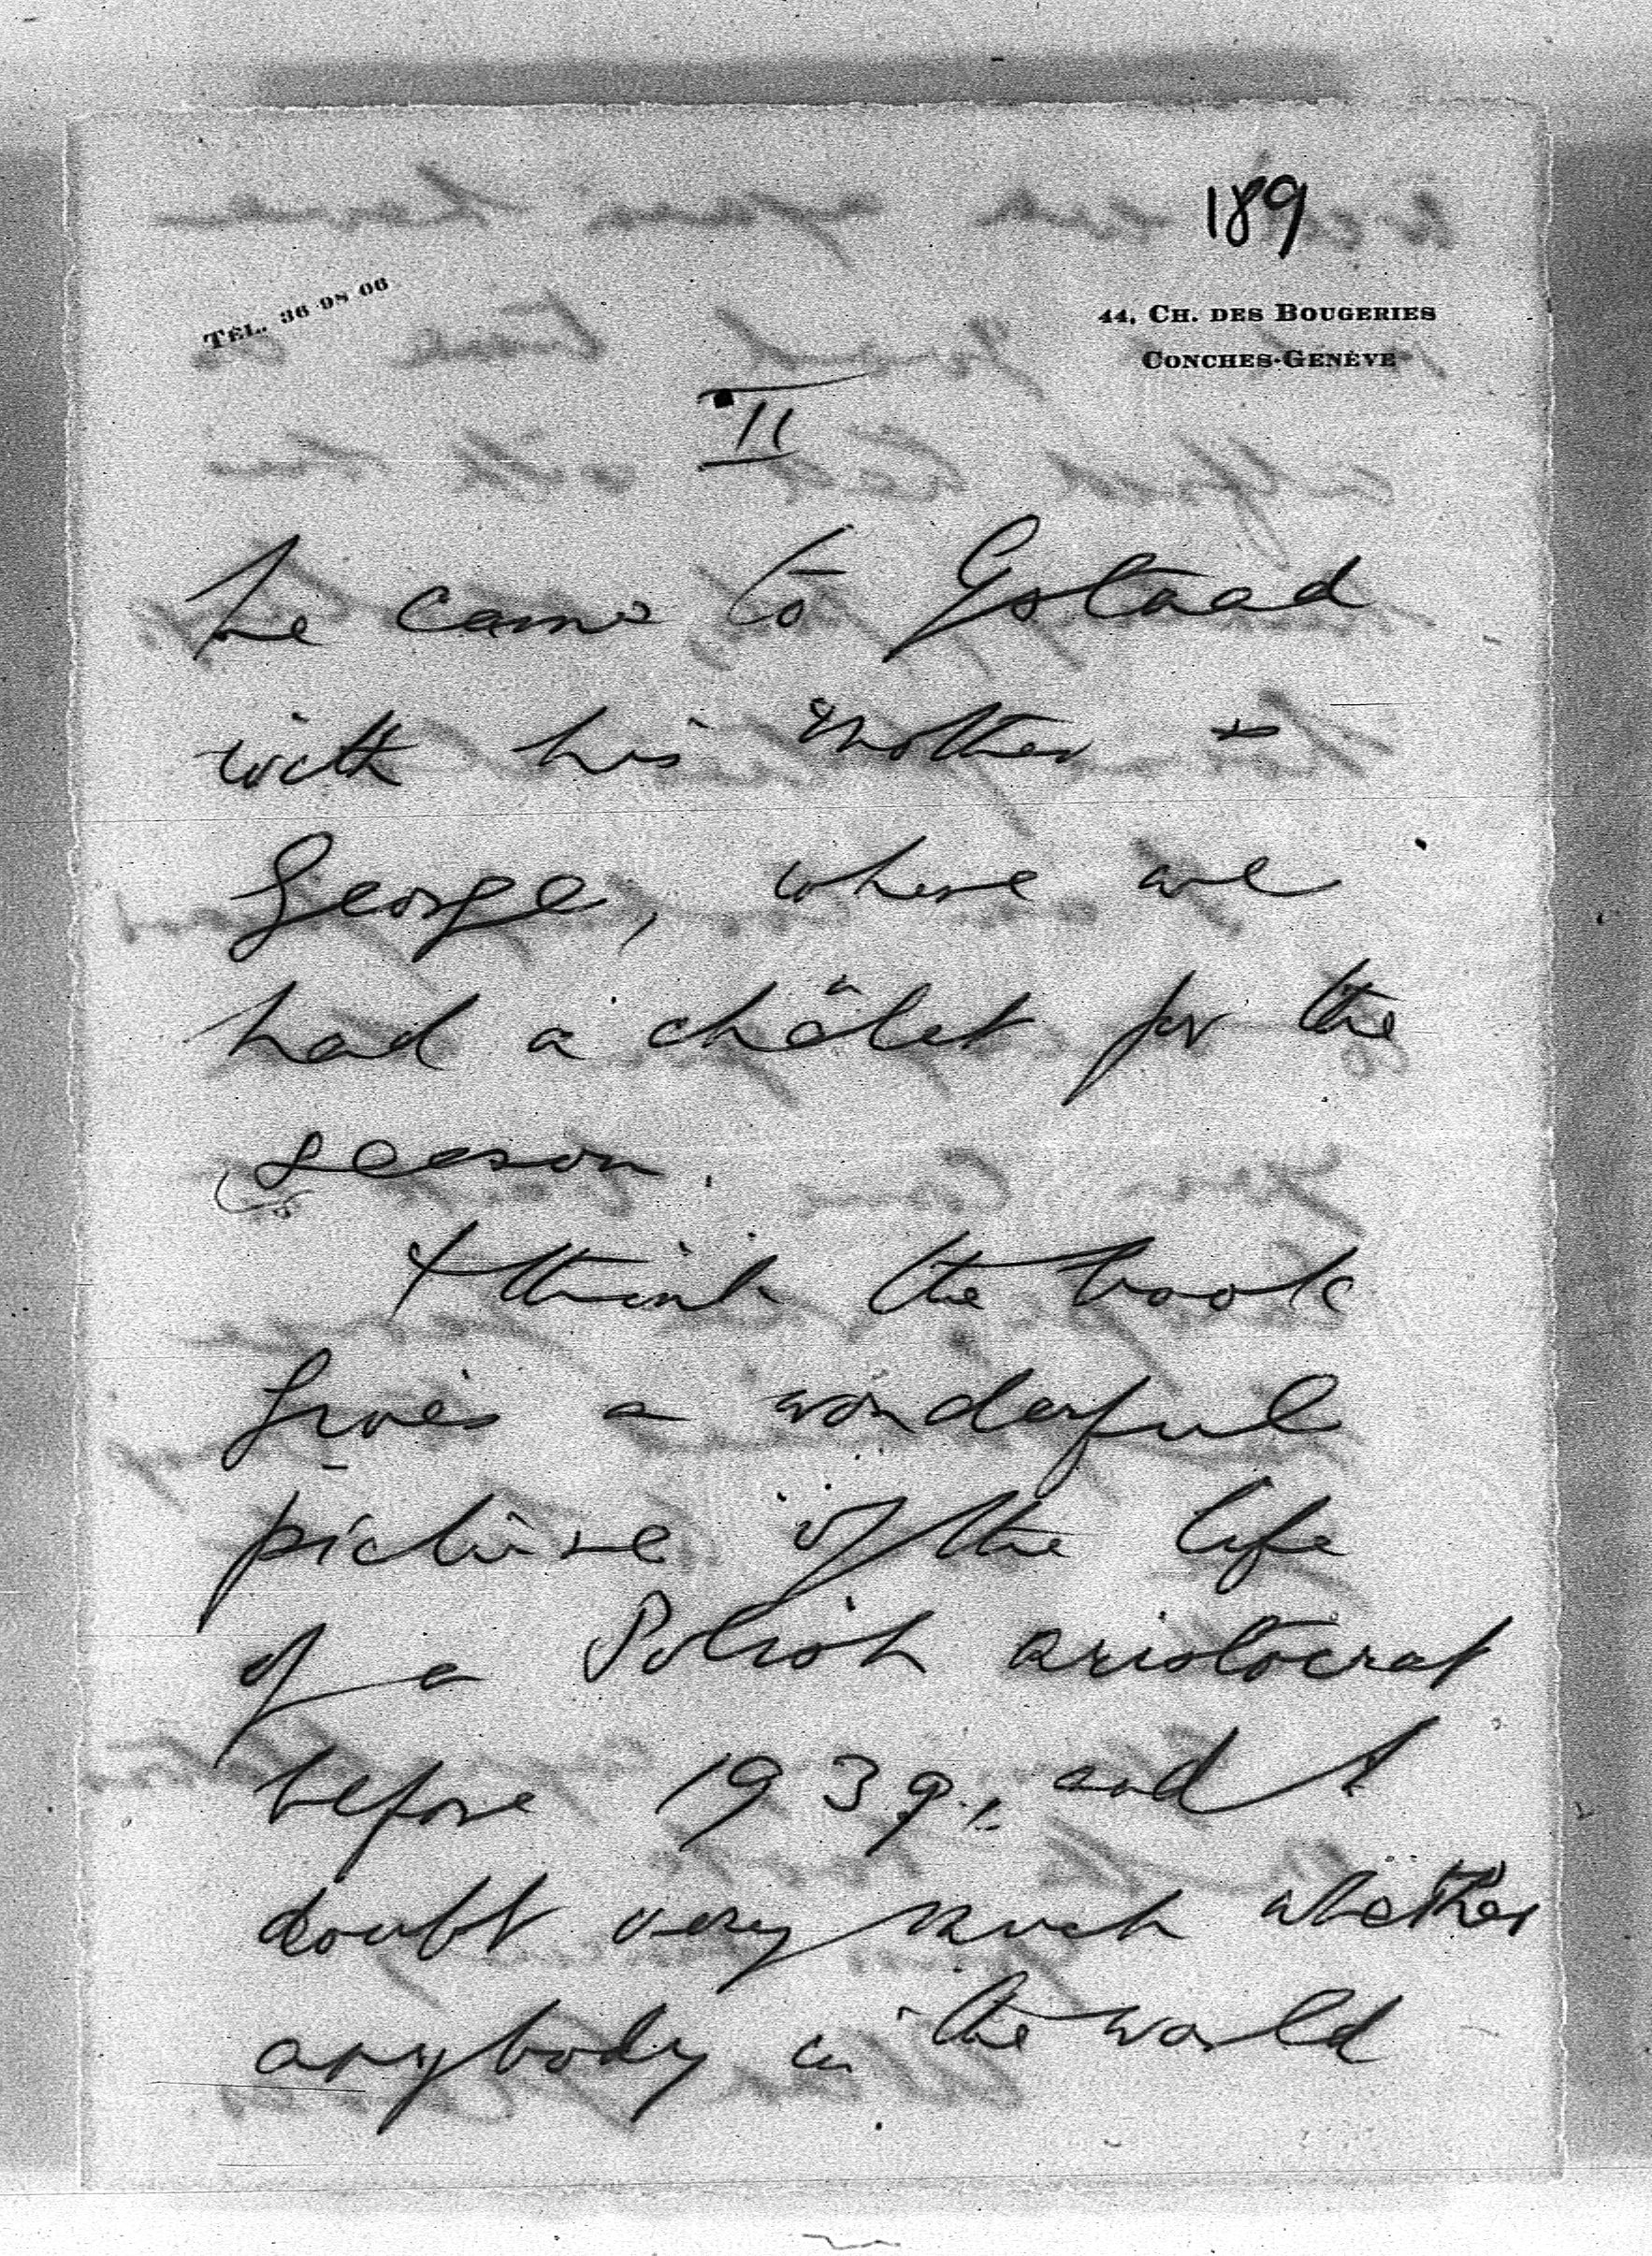 189
TÉL. 36 98 06
44, CH. DES BOUGERIES
CONCHES-GENÈVE
II
he came to Gstaad
with his mother +
George, where we
had a châlet for the
season.
I think the book
gives a wonderful
picture of the life
of a Polish aristocrat
before 1939, and I
doubt very much whether
anybody in the world